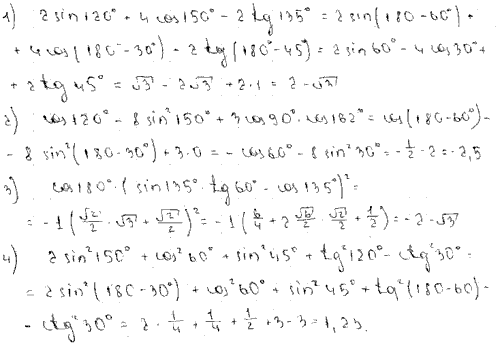 1) 2 sin120° + 4 cos150° - 2 tg 135° = 2 sin(180-60°) +
+ 4 cos(180°-30°) - 2 tg(180°-45°) = 2 sin60° - 4 cos30° +
+ 2 tg 45° = √3 - 2√3 + 2·1 = 2 - √3
2) cos120° - 8 sin²150° + 3 cos90°·cos162° = cos(180-60°) -
- 8 sin²(180-30°) + 3·0 = - cos60° - 8 sin²30° = -1/2 - 2 = -2,5
3) cos180°·(sin135°·tg60° - cos135°)² =
= -1(√2/2·√3 + √2/2)² = -1(6/4 + 2 √6/2·√2/2 + 1/2) = -2-√3
4) 2 sin²150° + cos²60° + sin²45° + tg²120° - ctg²30° =
= 2 sin²(180-30°) + cos²60° + sin²45° + tg²(180-60) -
- ctg²30° = 2·1/4 + 1/4 + 1/2 + 3 - 3 = 1,25.